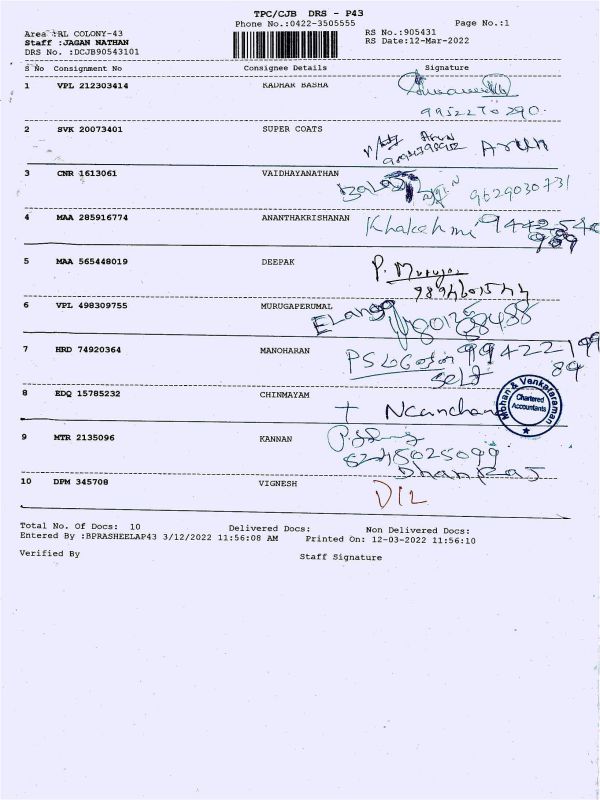 TPC/CJB DRS - P43
Phone No.:0422-3505555
Page No.:1
Area :RL COLONY-43
RS No.:905431
Staff :JAGAN NATHAN
RS Date:12-Mar-2022
DRS No. :DCJB90543101
S No Consignment No Consignee Details Signature
1 VPL 212303414 KADHAR BASHA
9952270290.
2 SVK 20073401 SUPER COATS
Arun
Arun
3 CNR 1613061 VAIDHAYANATHAN
9629030731
4 MAA 285916774 ANANTHAKRISHANAN
5 MAA 565448019 DEEPAK P. Murugan
6 VPL 498309755 MURUGAPERUMAL
Elango
7 HRD 74920364 MANOHARAN
Self
8 EDQ 15785232 CHINMAYAM
Mohan & Venkataraman
Chartered
Accountants
9 MTR 2135096 KANNAN
Dhanraj
10 DPM 345708 VIGNESH
D/L
Total No. Of Docs: 10 Delivered Docs: Non Delivered Docs:
Entered By :BPRASHEELAP43 3/12/2022 11:56:08 AM Printed On: 12-03-2022 11:56:10
Verified By Staff Signature